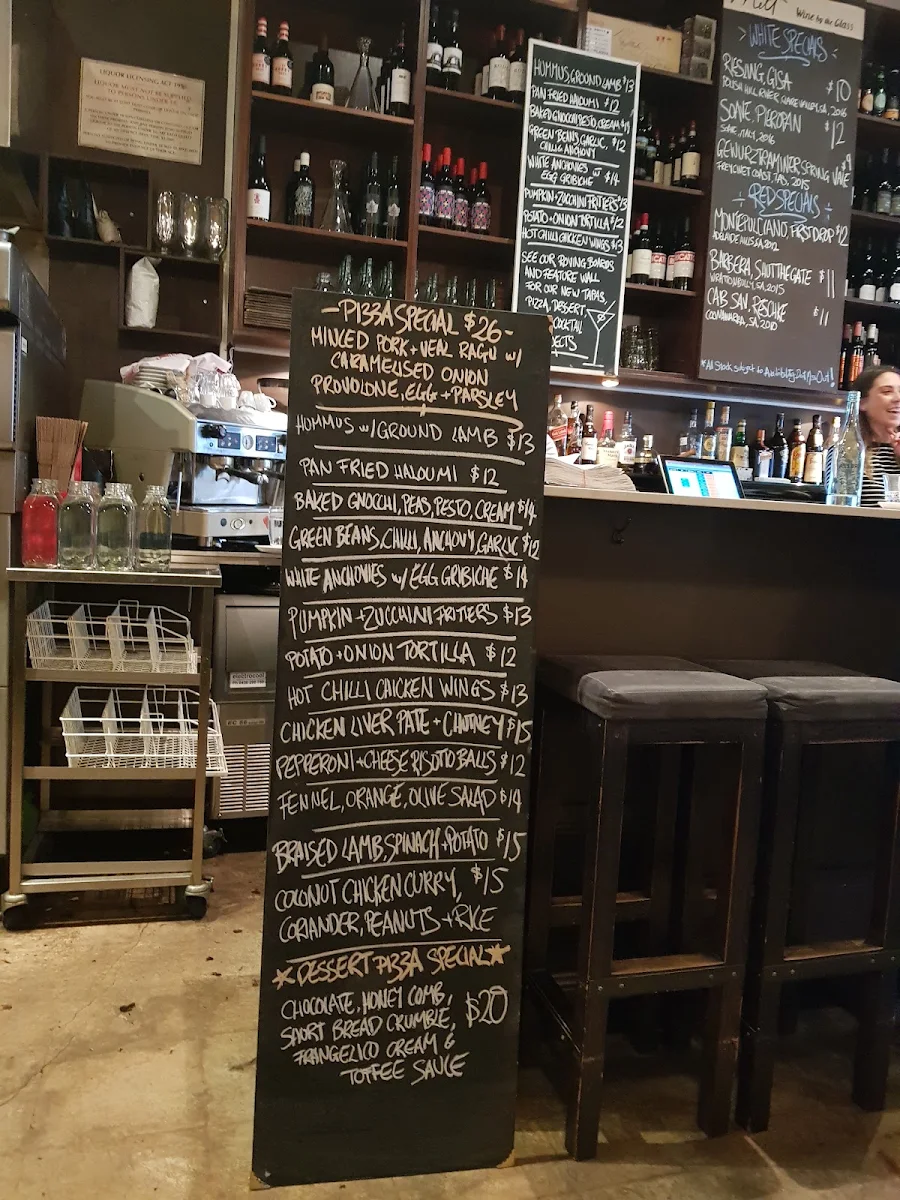 -PIZZA SPECIAL $26-
MINCED PORK + VEAL RAGU W/
CARAMELISED ONION
PROVOLONE, EGG + PARSLEY
HUMMUS w/ GROUND LAMB $13
PAN FRIED HALOUMI $12
BAKED GNOCCHI, PEAS, PESTO, CREAM $14
GREEN BEANS, CHILLI, ANCHOVY, GARLIC $12
WHITE ANCHOVIES w/ EGG GRIBICHE $14
PUMPKIN + ZUCCHINI FRITTERS $13
POTATO + ONION TORTILLA $12
HOT CHILLI CHICKEN WINGS $13
CHICKEN LIVER PATE + CHUTNEY $15
PEPPERONI + CHEESE RISOTTO BALLS $12
FENNEL, ORANGE, OLIVE SALAD $14
BRAISED LAMB, SPINACH + POTATO $15
COCONUT CHICKEN CURRY, $15
CORIANDER, PEANUTS + RICE
*DESSERT PIZZA SPECIAL*
CHOCOLATE, HONEY COMB,
SHORT BREAD CRUMBLE, $20
FRANGELICO CREAM &
TOFFEE SAUCE
HUMMUS GROUND LAMB $13
PAN FRIED HALOUMI $12
BAKED GNOCCHI, PESTO, CREAM $14
GREEN BEANS, GARLIC, $12
CHILLI & ANCHOVY
WHITE ANCHOVIES w/ $14
EGG GRIBICHE
PUMPKIN + ZUCCHINI FRITTERS $13
POTATO + ONION TORTILLA $12
HOT CHILLI CHICKEN WINGS $13
SEE OUR ROVING BOARDS
AND FEATURE WALL
FOR OUR NEW TAPAS,
PIZZA, DESSERT
COCKTAIL
Wine by the Glass
WHITE SPECIALS
RIESLING, GISA $10
POLISH HILL RIVER, CLARE VALLEY, SA, 2016
SOAVE, PIEROPAN $12
SOAVE, ITALY, 2016
GEWURZTRAMINER SPRING VALE $9
FREYCINET COAST, TAS, 2015
RED SPECIALS
MONTEPULCIANO, FIRST DROP $12
ADELAIDE HILLS, SA, 2012
BARBERA, SHUT THE GATE $11
WRATTONBULLY, SA, 2015
CAB SAV, RESCHKE $11
COONAWARRA, SA, 2010
LIQUOR LICENSING ACT 1990
LIQUOR MUST NOT BE SUPPLIED
TO PERSONS UNDER 18
electrocool